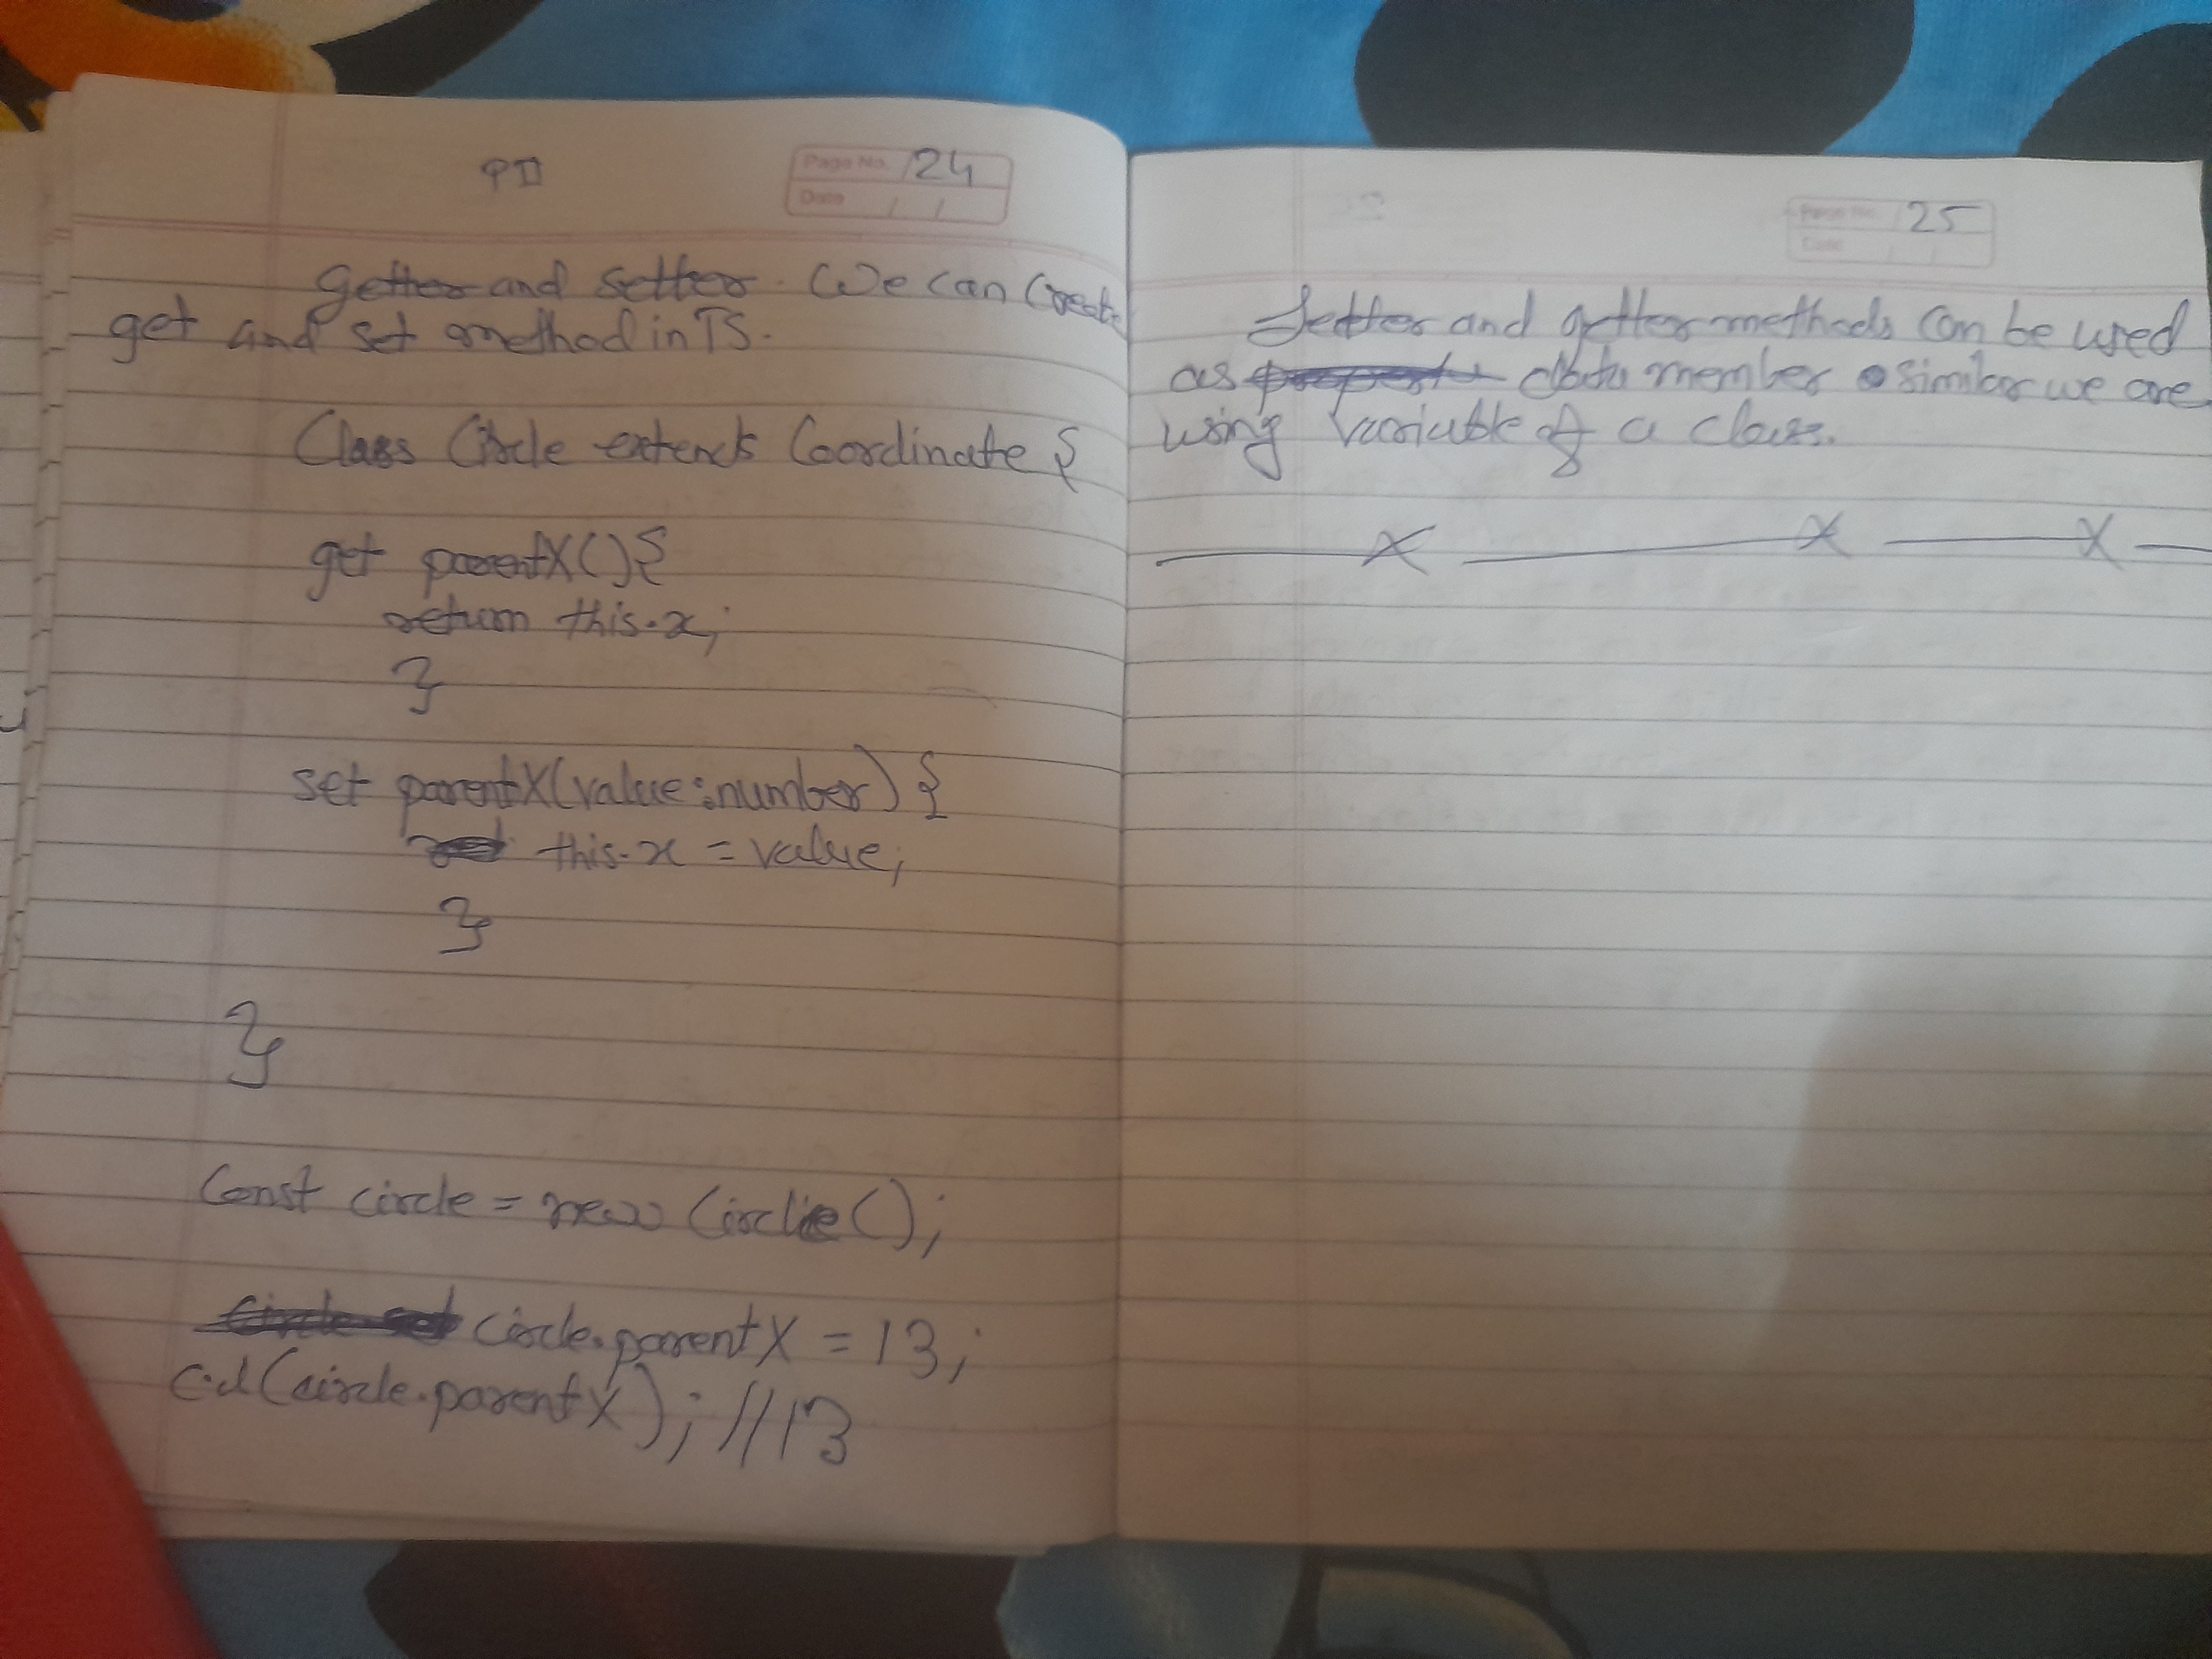 Page No. 24
Date / /
PII
Getter and setter. We can creat
get and set method in TS.
Class Circle extends Coordinate {
get parentX(){
return this.x;
}
set parentX(value:number){
this.x = value;
}
}
Const circle = new Circle();
circle.parentX = 13;
c.l(circle.parentX); //13
Page No. 25
Date / /
Setter and getter methods can be used
as data member similar we are
using variable of a class.
x x x